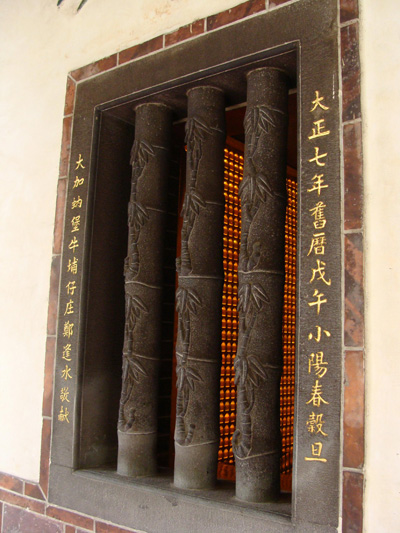 大正七年舊曆戊午小陽春穀旦
大加蚋堡牛埔仔庄鄭逢水敬獻